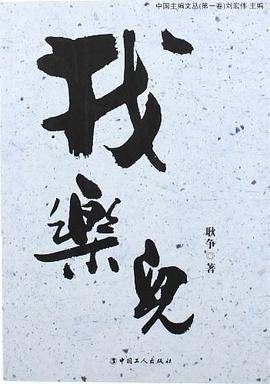 中国主编文丛(第一卷)刘宏伟 主编
我
樂
兒
耿争◎著
中国工人出版社